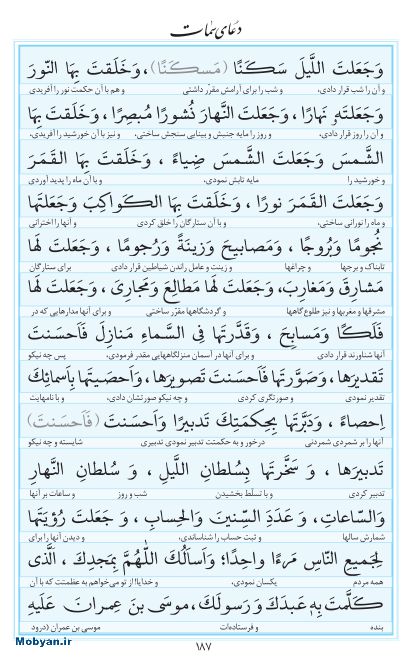 دعای سمات
وَ جَعَلتَ اللَّیلَ سَکَنًا (مَسکَنًا)، وَ خَلَقتَ بِهَا النّورَ
و آن را شب قرار دادی، و شب را برای آرامش مقرّر داشتی و هم با آن حکمت نور را آفریدی
وَ جَعَلتَهُ نَهارًا، وَ جَعَلتَ النَّهارَ نُشورًا مُبصِرًا، وَ خَلَقتَ بِهَا
و آن را روز قرار دادی، و روز را مایه جنبش و بینایی سنجش ساختی، و نیز با آن خورشید را آفریدی،
الشَّمسَ وَ جَعَلتَ الشَّمسَ ضِیاءً، وَ خَلَقتَ بِهَا القَمَرَ
و خورشید را مایه تابش نمودی، و با آن ماه را پدید آوردی
وَ جَعَلتَ القَمَرَ نورًا، وَ خَلَقتَ بِهَا الکَواکِبَ وَ جَعَلتَها
و ماه را نورانی ساختی، و با آن ستارگان را خلق کردی و آنها را اخترانی
نُجومًا وَ بُروجًا، وَ مَصابیحَ وَ زینَةً وَ رُجومًا، وَ جَعَلتَ لَها
تابناک و برجها و چراغها و زینت و عامل راندن شیاطین قرار دادی برای ستارگان
مَشارِقَ وَ مَغارِبَ، وَ جَعَلتَ لَها مَطالِعَ وَ مَجارِیَ، وَ جَعَلتَ لَها
مشرقها و مغربها و نیز طلوع‌گاهها و گردشگاهها مقرّر ساختی و برای آنها مدارهایی که در
فَلَکًا وَ مَسابِحَ، وَ قَدَّرتَها فِی السَّماءِ مَنازِلَ فَاَحسَنتَ
آنها شناورند قرار دادی و برای آنها در آسمان منزلگاههایی مقدر فرمودی، پس چه نیکو
تَقدیرَها، وَ صَوَّرتَها فَاَحسَنتَ تَصویرَها، وَ اَحصَیتَها بِاَسمائِکَ
تقدیر نمودی و صورتگری کردی و چه نیکو صورتشان دادی، و با نامهایت
اِحصاءً، وَ دَبَّرتَها بِحِکمَتِکَ تَدبیرًا وَ اَحسَنتَ (فَاَحسَنتَ)
آنها را بر شمردی شمردنی در خور و به حکمتت تدبیر نمودی تدبیری شایسته و چه نیکو
تَدبیرَها، وَ سَخَّرتَها بِسُلطانِ اللَّیلِ، وَ سُلطانِ النَّهارِ
تدبیر کردی و با تسلّط بخشیدن شب و روز و ساعات بر آنها
وَ السّاعاتِ، وَ عَدَدِ السِّنینَ وَ الحِسابِ، وَ جَعَلتَ رُؤیَتَها
شمارش سالها و ثبت حساب را شناساندی، و دیدن آنها را برای
لِجَمیعِ النّاسِ مَرءًا واحِدًا؛ وَ اَسأَلُکَ اللّٰهُمَّ بِمَجدِکَ، الَّذی
همه مردم یکسان نمودی، و خدایا! از تو می‌خواهم به عظمتت که با آن
کَلَّمتَ بِهِ عَبدَکَ وَ رَسولَکَ، موسَی بنَ عِمرانَ عَلَیهِ
بنده و فرستاده‌ات موسی بن عمران (درود
Mobyan.ir
۱۸۷